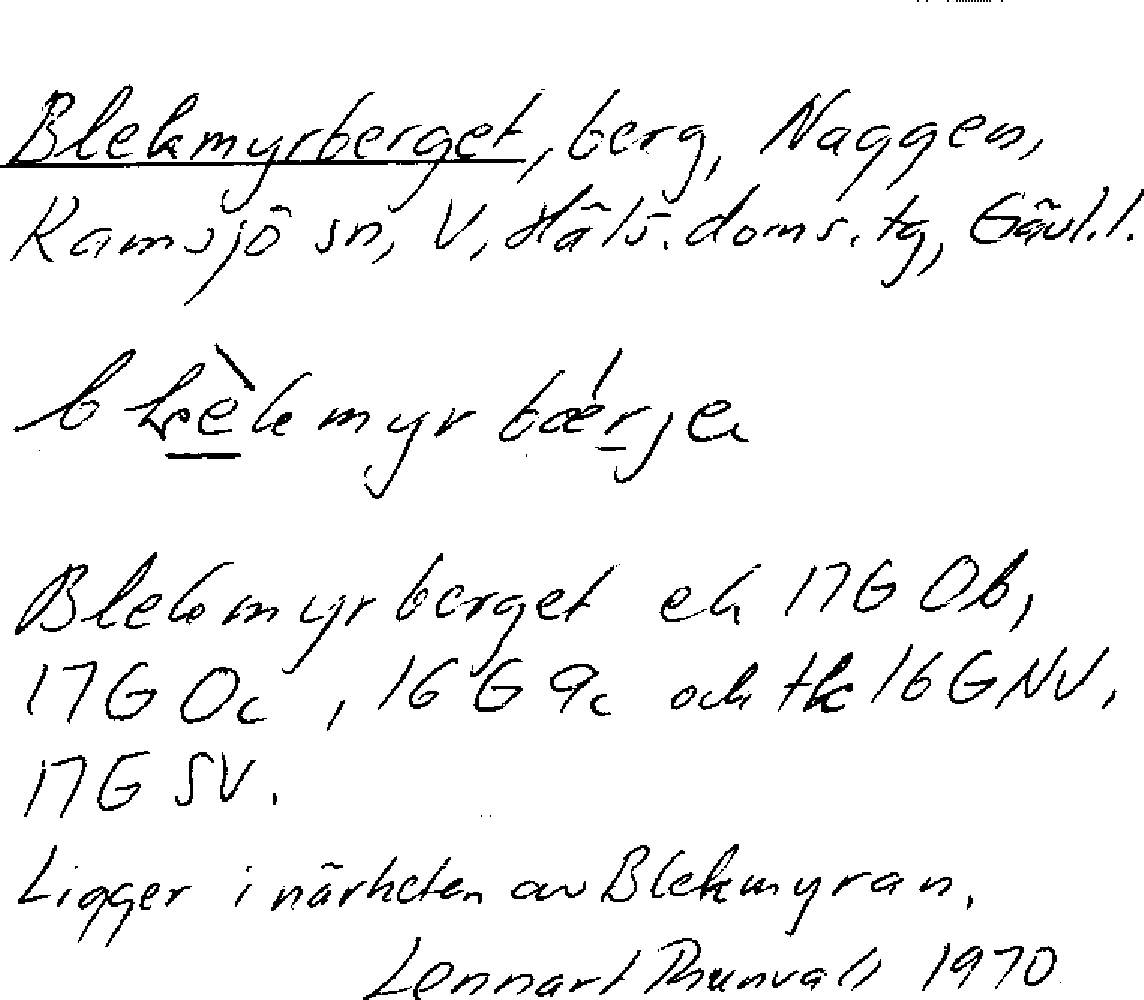 Blekmyrberget, berg, Naggen,
Ramsjö sn, V. Häls. doms. tg, Gävl. l.
Blekmyrberget ek 17G 0b,
17G 0c, 16G 9c och tk 16G NV,
17G SV.
Ligger i närheten av Blekmyran.
Lennart 1970